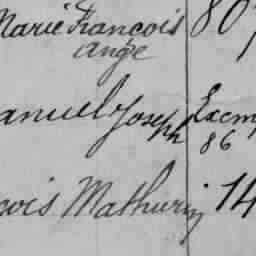 Marie François 80
Ange
anuel Joseph Exem
86
çois Mathurin 14